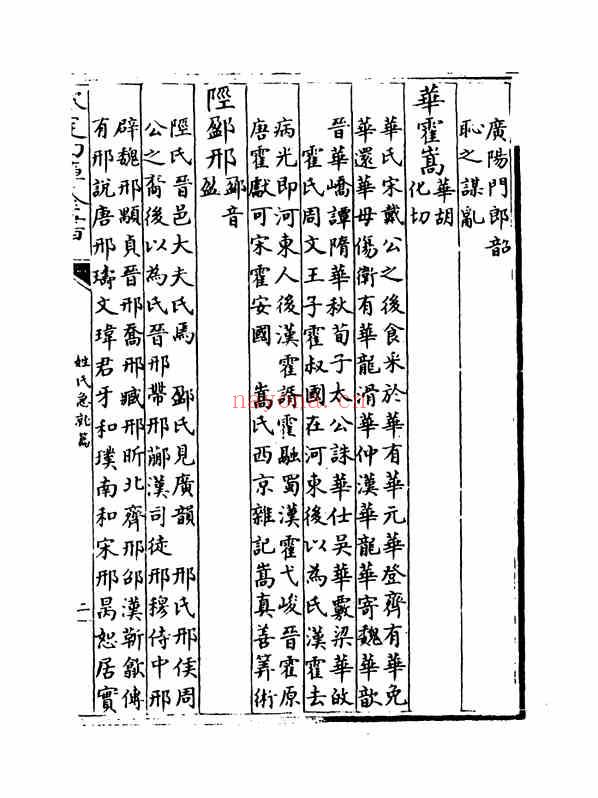 廣陽門郎韶
恥之謀亂
華霍嵩華胡化切
華氏宋戴公之後食采於華有華元華登齊有華免
華還華毋傷衛有華龍滑華仲漢華龍華寄魏華歆
晉華嶠譚隋華秋荀子太公誅華仕吳華覈梁華皎
霍氏周文王子霍叔國在河東後以為氏漢霍去
病光即河東人後漢霍諝霍融蜀漢霍弋峻晉霍原
唐霍獻可宋霍安國 嵩氏西京雜記嵩真善筭術
陘郔邢郔音
陘氏晉邑大夫氏焉 氏見廣韻 邢氏邢侯周
公之裔後以為氏晉邢帶邢蒯漢司徒邢穆侍中邢
辟魏邢顒貞晉邢喬邢臧邢昕北齊邢邵漢靳歙傳
有邢說唐邢璹文瑋君牙和璞南和宋邢昺恕居實
姓氏急就篇
二十
nayona.cn